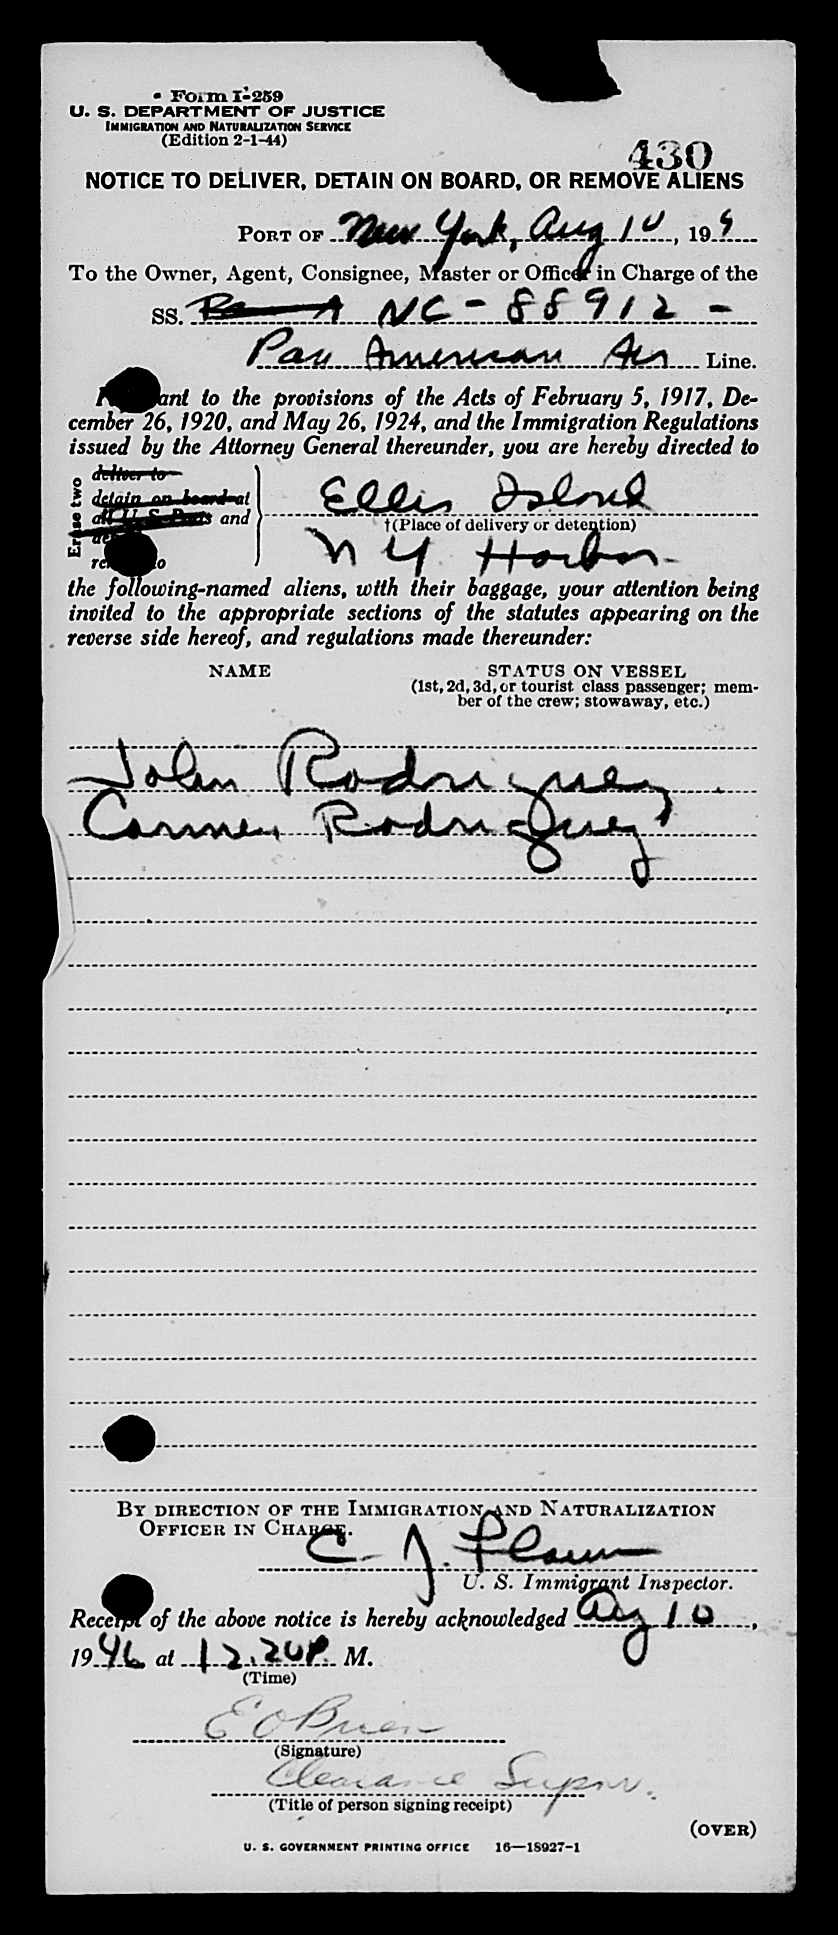 Form I-259
U. S. DEPARTMENT OF JUSTICE
IMMIGRATION AND NATURALIZATION SERVICE
(Edition 2-1-44)
430
NOTICE TO DELIVER, DETAIN ON BOARD, OR REMOVE ALIENS
PORT OF New York, Aug 10, 19
To the Owner, Agent, Consignee, Master or Officer in Charge of the
SS. NC-88912-
Pan American Air Line.
to the provisions of the Acts of February 5, 1917, De-
cember 26, 1920, and May 26, 1924, and the Immigration Regulations
issued by the Attorney General thereunder, you are hereby directed to
Erase two
deliver to
detain on board at
all U. S. Ports and
Ellis Island
†(Place of delivery or detention)
N Y. Harbor
the following-named aliens, with their baggage, your attention being
invited to the appropriate sections of the statutes appearing on the
reverse side hereof, and regulations made thereunder:
NAME STATUS ON VESSEL
(1st, 2d, 3d, or tourist class passenger; mem-
ber of the crew; stowaway, etc.)
John Rodriguez
Carmen Rodriguez
BY DIRECTION OF THE IMMIGRATION AND NATURALIZATION
OFFICER IN CHARGE.
C. J.
U. S. Immigrant Inspector.
Receipt of the above notice is hereby acknowledged Aug 10,
1946 at 12.20P. M.
(Time)
E O Brien
(Signature)
Clearance Superv.
(Title of person signing receipt)
(OVER)
U. S. GOVERNMENT PRINTING OFFICE 16—18927-1